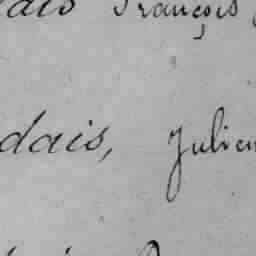 dais François
dais, Julien